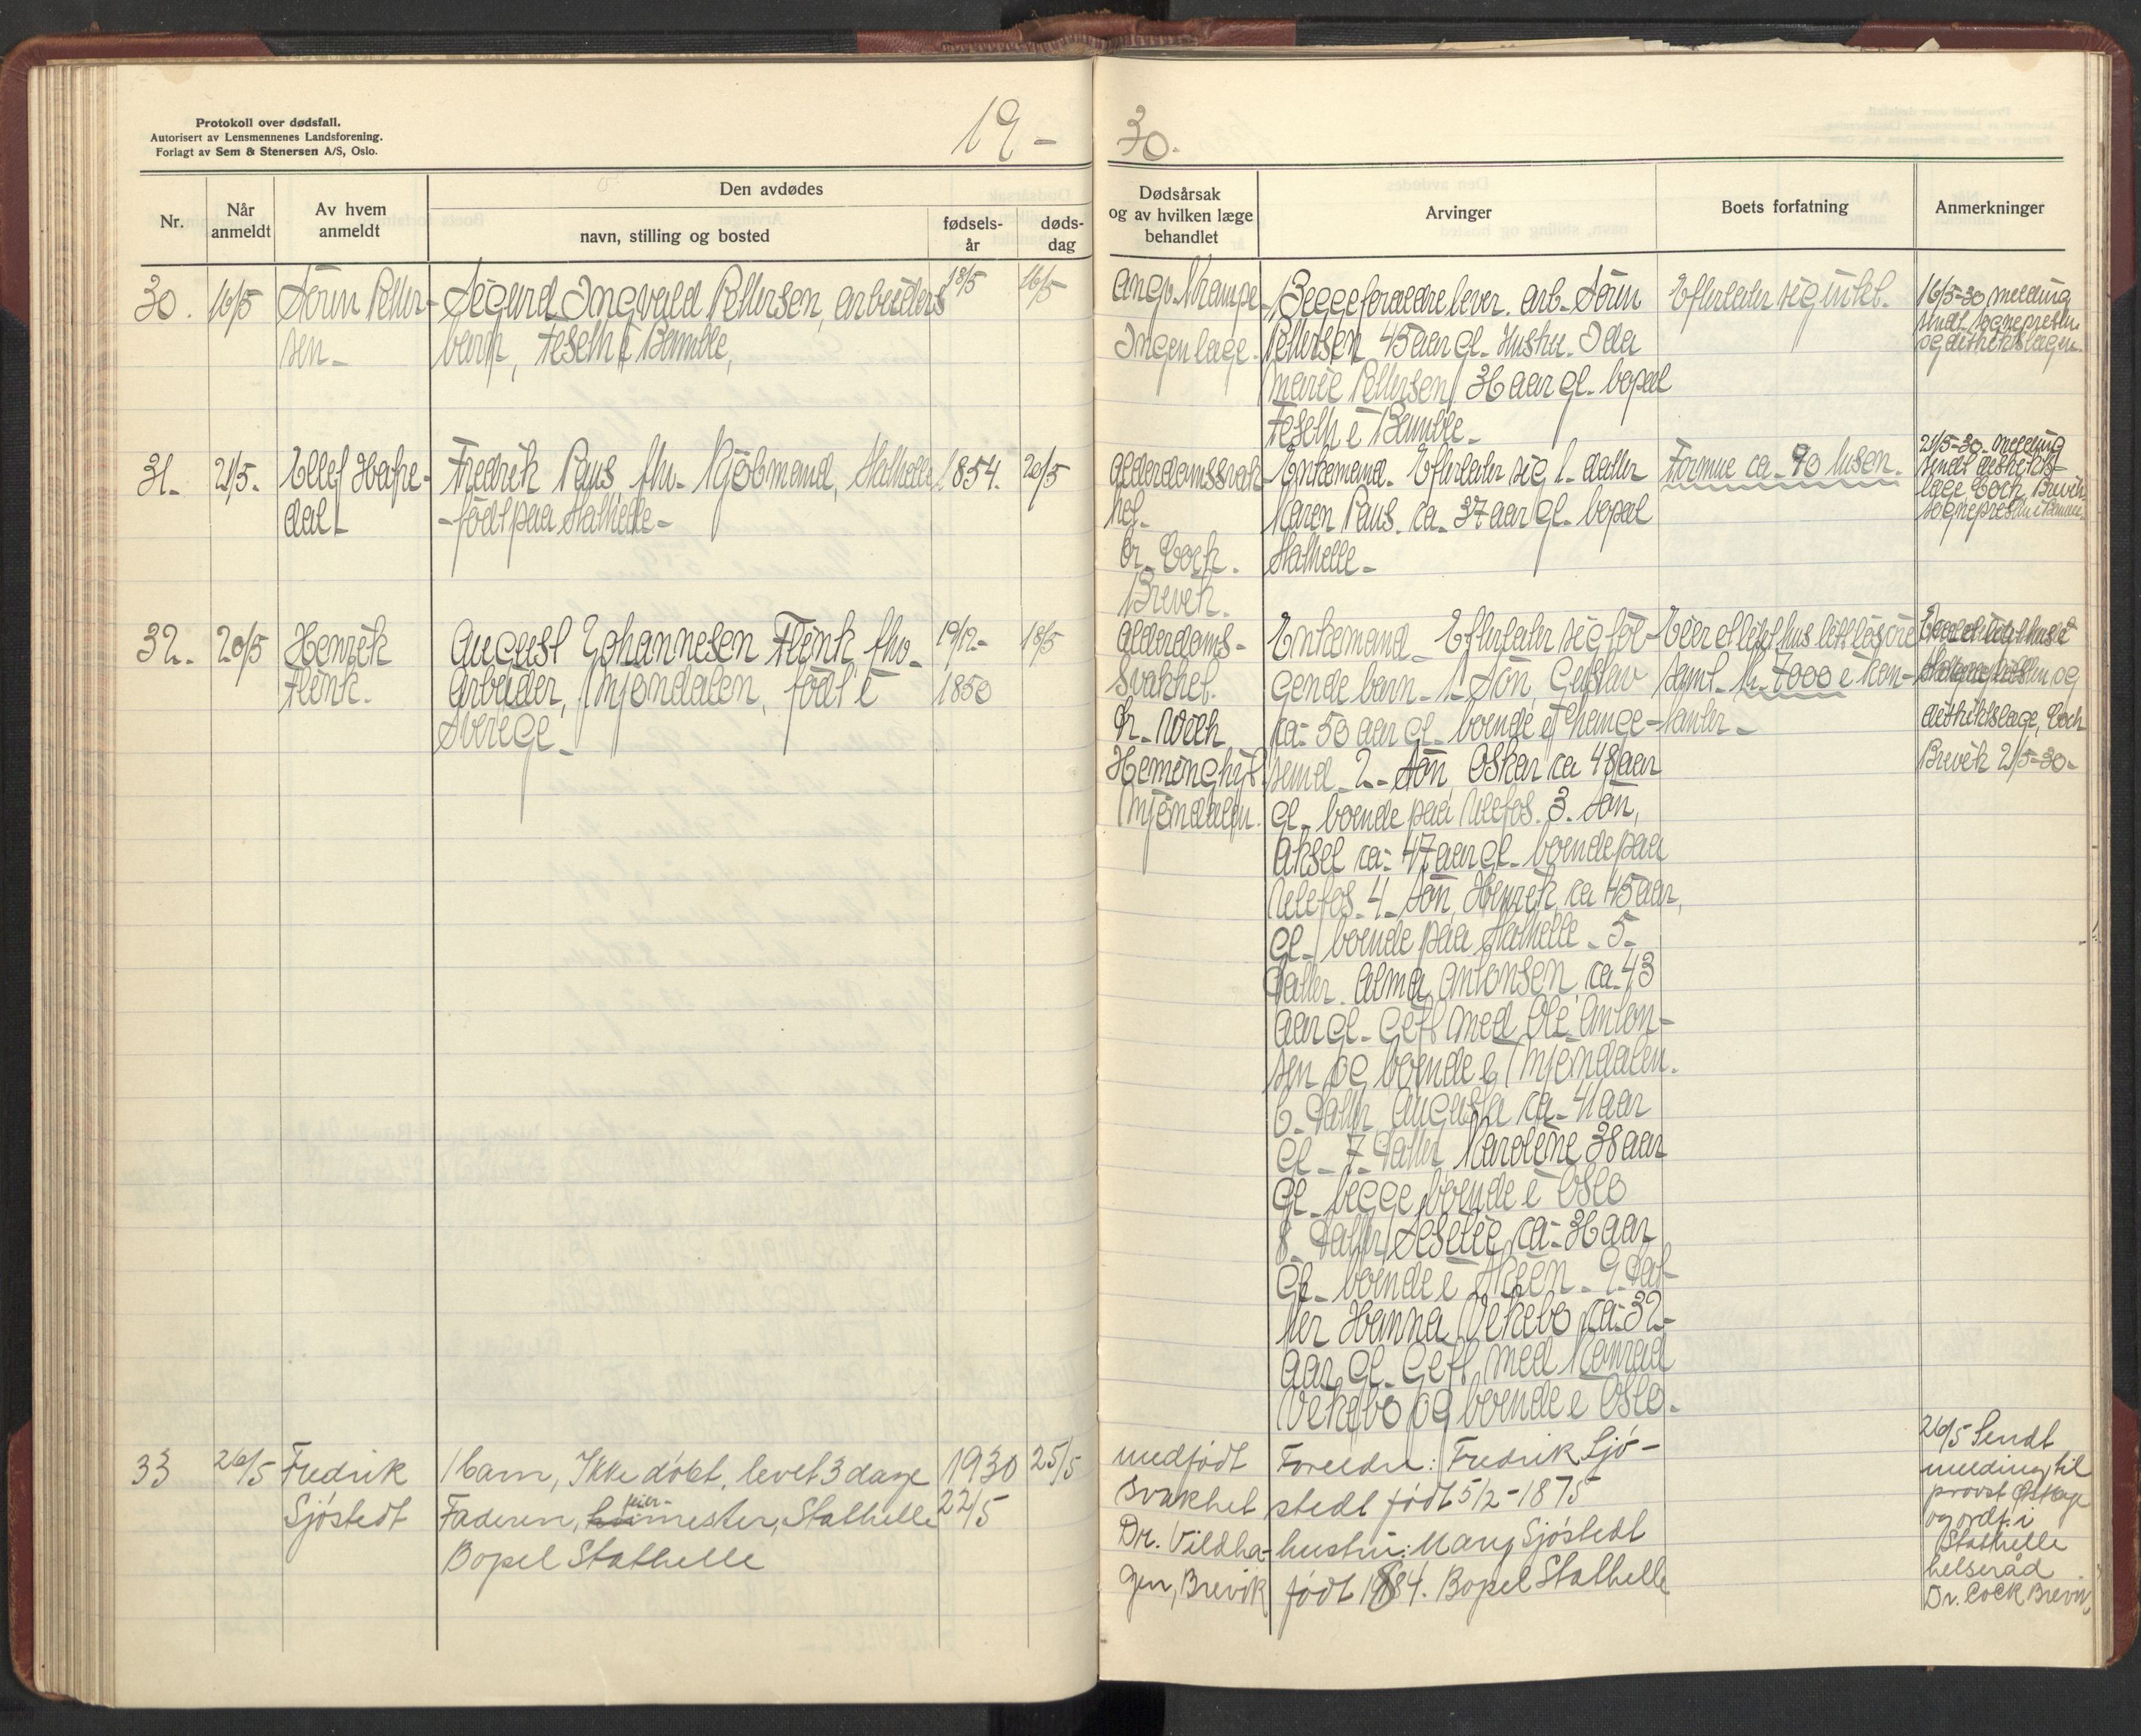 Protokoll over dødsfall.
Autorisert av Lensmennenes Landsforening.
Forlagt av Sem & Stenersen A/S, Oslo.
19-
30.
Nr.
Når
anmeldt
Av hvem
anmeldt
Den avdødes
navn, stilling og bosted
fødsels-
år
døds-
dag
Dødsårsak
og av hvilken læge
behandlet
Arvinger
Boets forfatning
Anmerkninger
30.
16/5
Sören Petter-
sen-
Sigurd Ingvald Pettersen, arbeiders
barn, Feseth i Bamble,
18/5
16/5-
Krampe
Ingen læge.
Begge forældre lever. Arb. Sören
Pettersen 45 aar gl. Hustru. Ida
Marie Pettersen 36 aar gl. bopæl
Feseth i Bamble.
Efterlater sig intet.
16/5-30 melding
sendt sognepresten
og distriktslægen.
31.
21/5.
Ellef Hafre-
dal
Fredrik Paus fhv. Kjöbmand, Stathelle
-født paa Stathelle-
1854.
20/5
Alderdomssvak-
het.
Dr. Cock.
Brevik.
Enkemand. Efterlater sig 1. datter
Karen Paus. ca. 37 aar gl. bopæl
Stathelle-
Formue ca. 90 tusen.
21/5-30. melding
sendt distrikts-
læge Cock Brevik
sognepresten i Bamble.
32.
20/5
Henrik
Flink.
August Johannesen Flink fhv.
Arbeider, Mjöndalen, født i
Sverige-
19/12-
1850
18/5
Alderdoms-
svakhet.
Dr.
Mjöndalen.
Enkemand- Efterlater sig föl-
gende barn- 1. Sön, Gustav
ca. 50 aar gl. boende i Thange-
sund 2. Sön Oskar ca 48 aar
gl. boende paa Ulefos. 3. Sön,
Aksel ca. 47 aar gl. boende paa
Ulefos. 4. Sön, Henrik, ca 45 aar,
gl. boende paa Stathelle. 5.
Datter. Alma Antonsen ca. 43
aar gl. Gift med Ole Anton-
sen og boende i Mjöndalen.
6. Datter Augusta ca. 41 aar
gl. 7. Datter Karoline 38 aar
gl. begge boende i Oslo
8. Datter ca. 36 aar
gl. boende i Skien. 9. Dat-
ter Hanna Vekebo ca. 32-
aar gl. Gift med Konrad
Vekebo og boende i Oslo.
Eier et litet hus litt lösöre
samt kr. 7000 i kon-
tanter-
og
distriktslæge, Cock
Brevik 21/5-30-
33
26/5
Fredrik
Sjöstedt
1 barn, Ikke döbt, levet 3 dage
Faderen, feier-mester, Stathelle
Bopel Stathelle
1930
22/5
25/5
medfödt
svakhet
Dr. Vildha-
gen, Brevik
Foreldre: Fredrik Sjö-
stedt födt 5/2-1875
hustru: Mary Sjöstedt
födt 1884. Bopel Stathelle
26/5 Sendt
melding til
provst
og ordf. i
Stathelle
helseråd
Dr. Cock Brevik